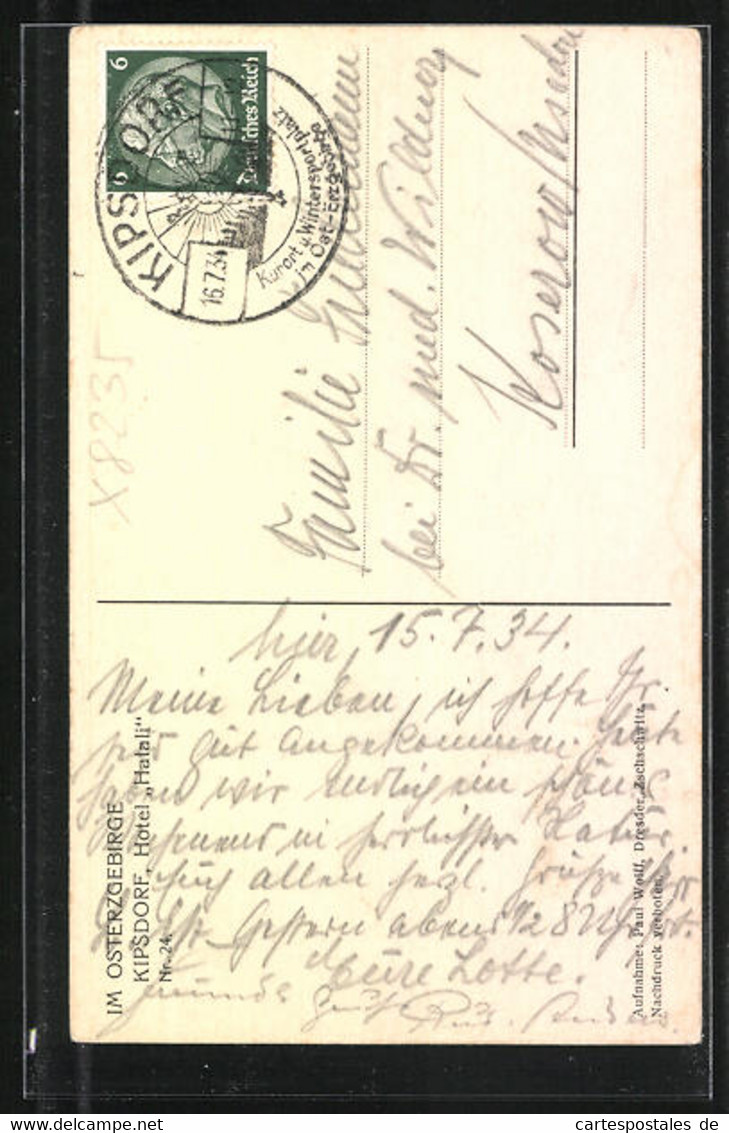 6 6
Deutsches Reich
KIPSDORF
Kurort u. Wintersportplatz
im Ost-Erzgebirge
16.7.34
X8235
Familie
bei Dr. med.
Koserow/Usedom
hier, 15.7.34.
Meine Lieben, ich hoffe Ihr
seid gut angekommen. Heute
haben wir endlich ein
in herrlichster Natur.
Euch allen herzl. Grüße
Gestern abend 1/2 8 Uhr
Eure Lotte.
IM OSTERZGEBIRGE
KIPSDORF, Hotel „Halali“
Nr. 24.
Aufnahme: Paul Wolff, Dresden-Zschachwitz
Nachdruck verboten.
www.delcampe.net
cartespostales de